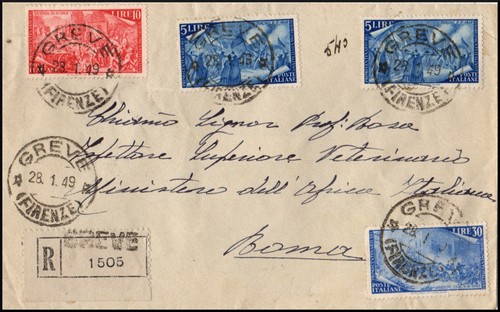 LIRE 10
5 LIRE
POSTE ITALIANE
5 LIRE
POSTE ITALIANE
GREVE
28.1.49
(FIRENZE)
GREVE
28.1.49
(FIRENZE)
GREVE
49
(FIRENZE)
540
Chiamo Signor Prof. Bosa
Ispettore Superiore Veterinario
Ministero dell'Africa Italiana
Roma
GREVE
28.1.49
(FIRENZE)
R
GREVE
1505
GREVE
28.1.
(FIRENZE)
LIRE 30
POSTE ITALIANE